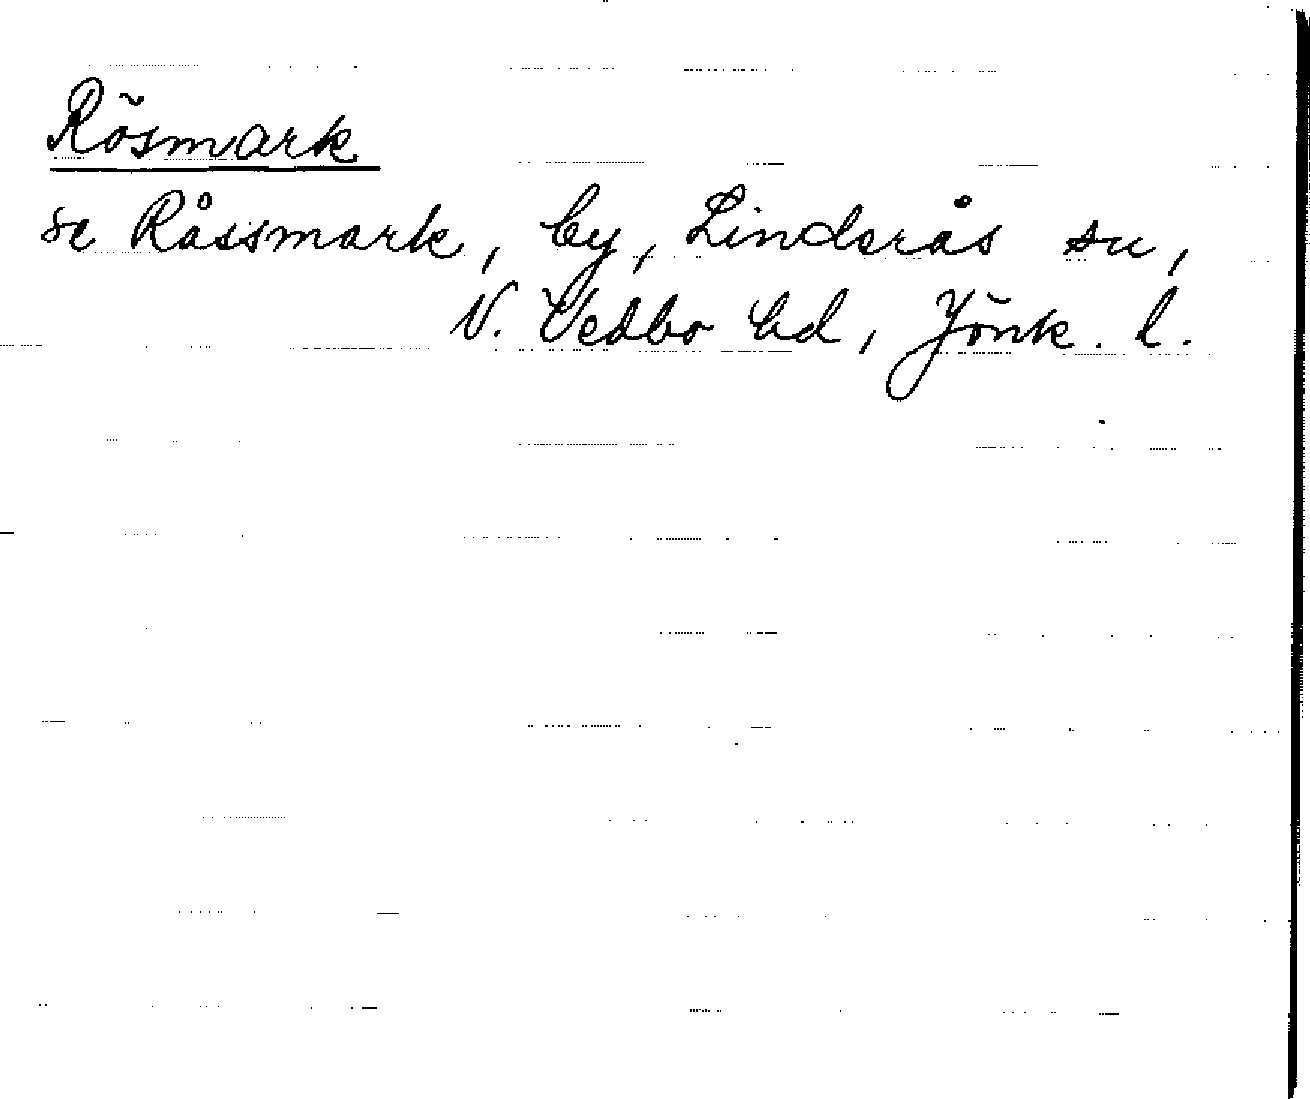 Rösmark
se Råssmark, by, Linderås sn,
N. Vedbo hd, Jönk. l.